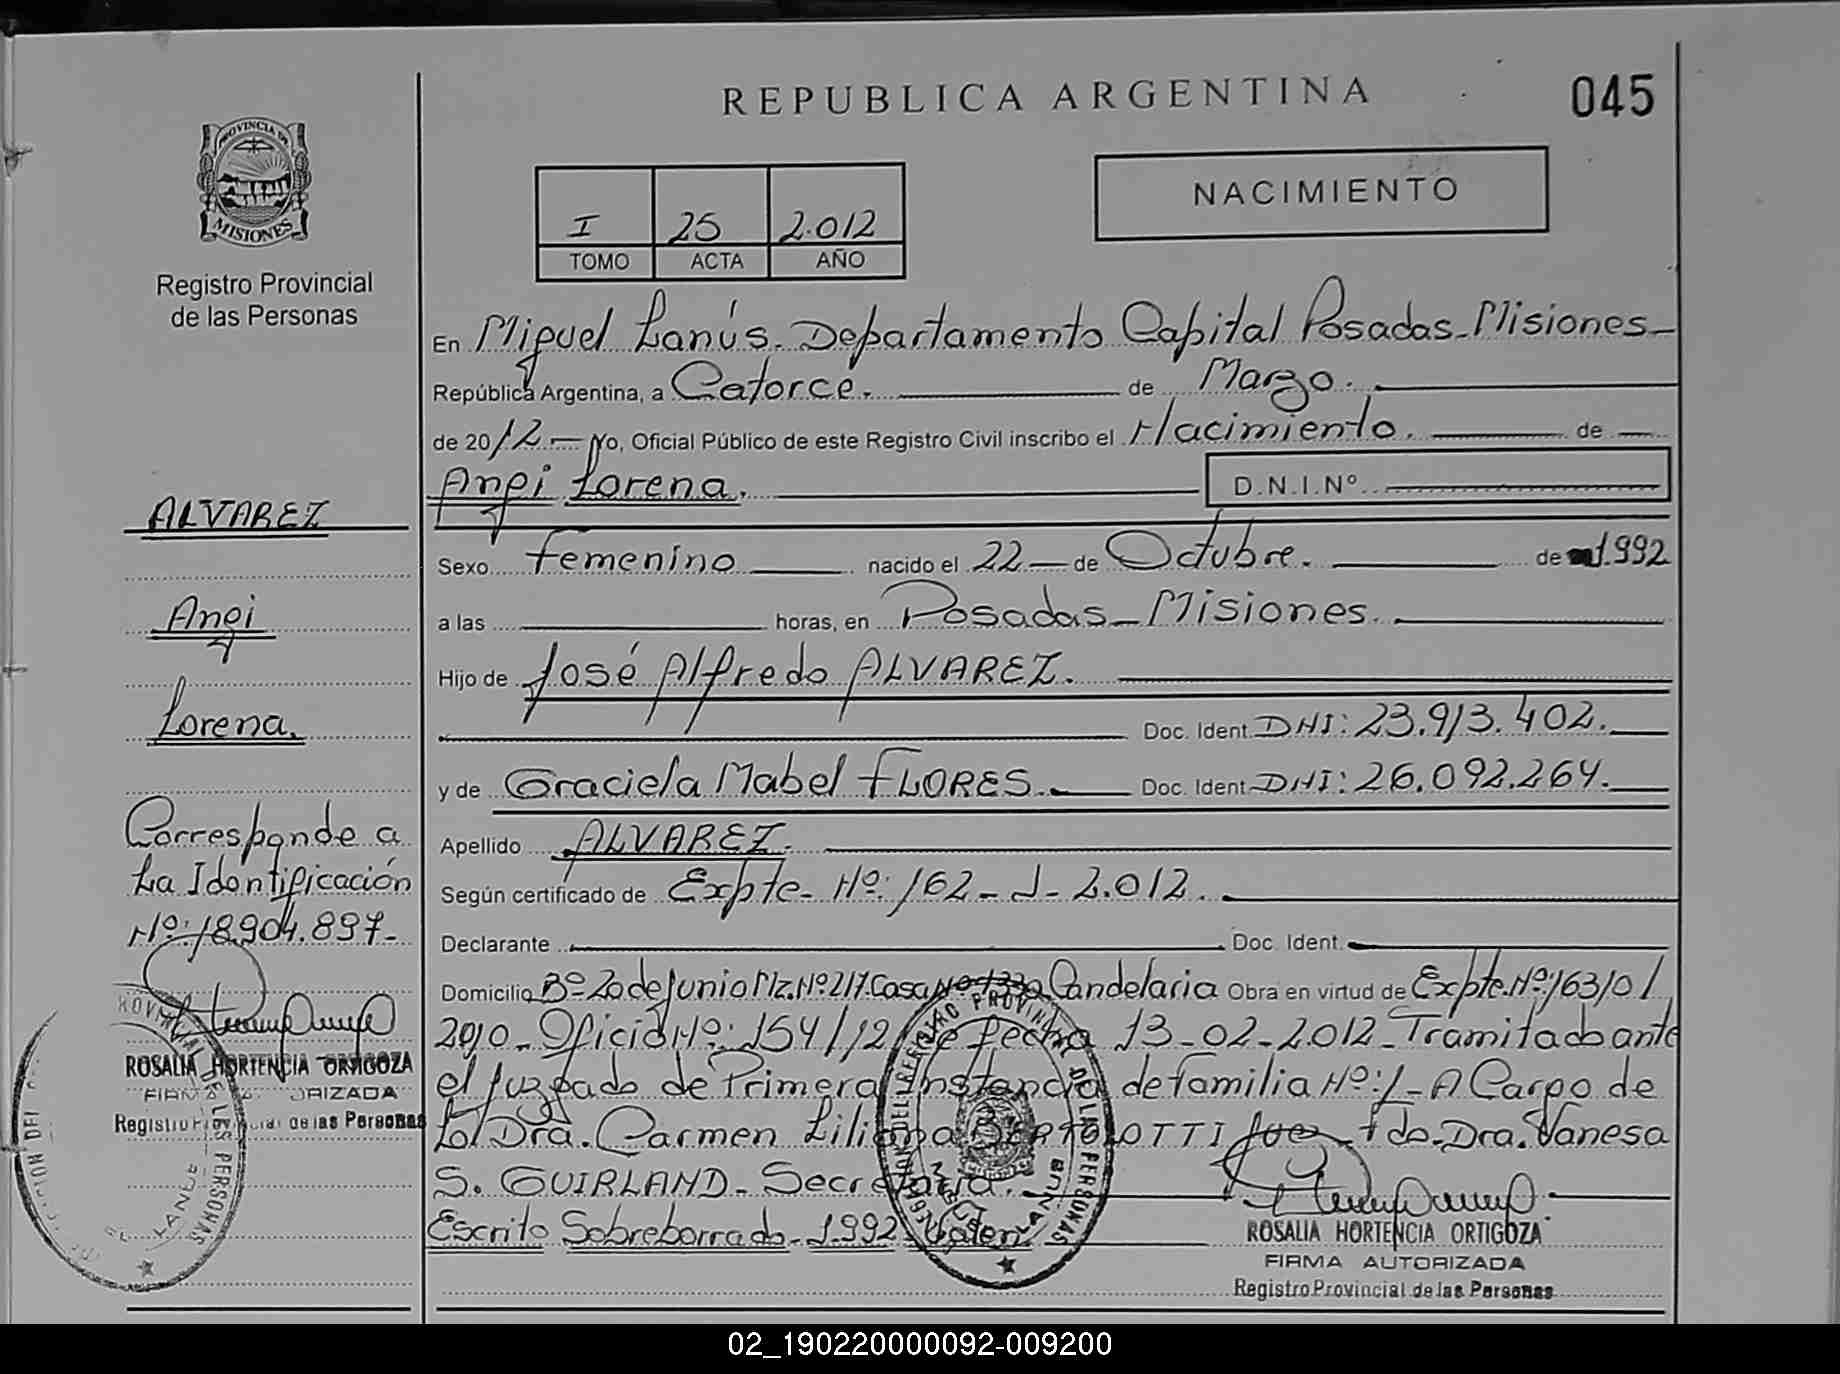 REPUBLICA ARGENTINA
045
PROVINCIA DE
MISIONES
Registro Provincial
de las Personas
I 25 2.012
TOMO ACTA AÑO
NACIMIENTO
En Miguel Lanús. Departamento Capital Posadas-Misiones-
República Argentina, a Catorce. de Marzo.
de 2012.- Yo, Oficial Público de este Registro Civil inscribo el Nacimiento. de
Angi Lorena. D.N.I.Nº
Sexo Femenino nacido el 22 de Octubre. de 1.992
a las horas, en Posadas-Misiones.
Hijo de José Alfredo ALVAREZ.
Doc. Ident. DNI: 23.913.402.
y de Graciela Mabel FLORES. Doc. Ident. DNI: 26.092.264.
Apellido ALVAREZ.
Según certificado de Expte- Nº: 162-J-2.012.
Declarante Doc. Ident.
Domicilio Bº 20 de Junio Mz. Nº 217. Casa Nº Candelaria Obra en virtud de Expte. Nº: 163/01
2010- Oficio Nº: 154/12 de fecha 13-02-2.012- Tramitado ante
el Juzgado de Primera Instancia de Familia Nº: 1- A Cargo de
La Dra. Carmen Liliana BERTOLOTTI Juez - Fdo. Dra. Vanesa
S. GUIRLAND- Secretaria.
Escrito Sobreborrado- 1.992- Valen.
ROSALIA HORTENCIA ORTIGOZA
FIRMA AUTORIZADA
Registro Provincial de las Personas
ALVAREZ
Angi
Lorena.
Corresponde a
La Identificación
Nº: 18.904.897-
ROSALIA HORTENCIA ORTIGOZA
FIRMA AUTORIZADA
Registro Provincial de las Personas
02_190220000092-009200